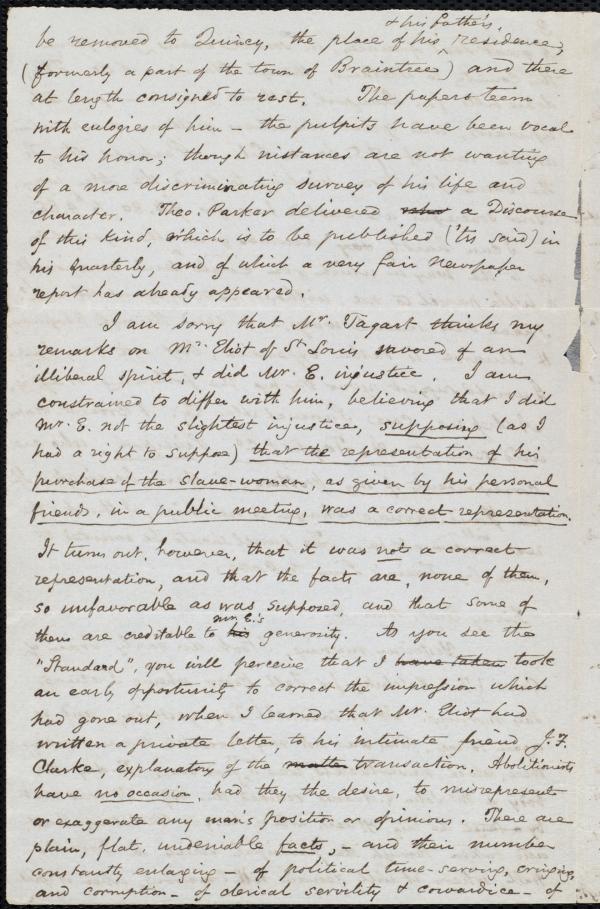 & his father's,
be removed to Quincy, the place of his ^ residence,
(formerly a part of the town of Braintree) and there
at length consigned to rest. The papers teem
with eulogies of him – the pulpits have been vocal
to his honor; though instances are not wanting
of a more discriminating survey of his life and
character. Theo. Parker delivered a Discourse
of this kind, which is to be published ('tis said) in
his Quarterly, and of which a very fair Newspaper
report has already appeared.
I am sorry that Mr. Tagart thinks my
remarks on Mr. Eliot of St Louis savored of an
illiberal spirit, & did Mr. E. injustice. I am
constrained to differ with him, believing that I did
Mr. E. not the slightest injustice, supposing (as I
had a right to suppose) that the representation of his
purchase of the slave-woman, as given by his personal
friends, in a public meeting, was a correct representation.
It turns out, however, that it was not a correct
representation, and that the facts are, none of them,
so unfavorable as was supposed, and that some of
them are creditable to his Mr. E.'s generosity. As you see the
"Standard", you will perceive that I have taken took
an early opportunity to correct the impression which
had gone out, when I learned that Mr. Eliot had
written a private letter, to his intimate friend J. F.
Clarke, explanatory of the matter transaction. Abolitionists
have no occasion, had they the desire, to misrepresent
or exaggerate any man's position or opinions. There are
plain, flat, undeniable facts, – and their number
constantly enlarging – of political time-serving, cringing,
and corruption – of clerical servility & cowardice – of